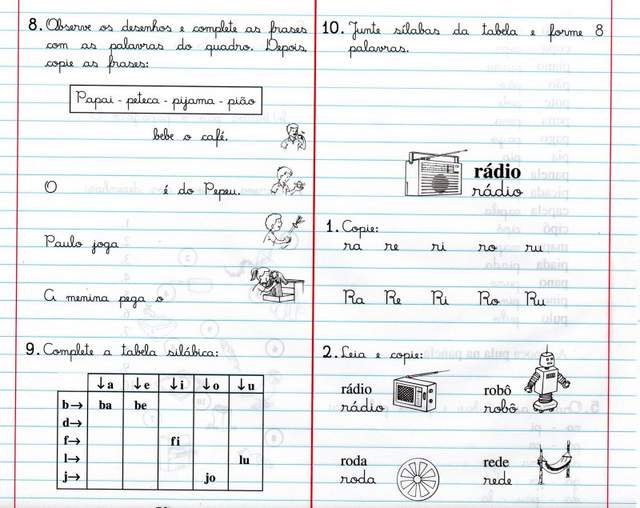 8. Observe os desenhos e complete as frases
com as palavras do quadro. Depois
copie as frases:
Papai - peteca - pijama - pião
bebe o café.
O é do Pepeu.
Paulo joga
A menina pega o
9. Complete a tabela silábica:
↓a ↓e ↓i ↓o ↓u
b→ ba be
d→
f→ fi
l→ lu
j→ jo
10. Junte sílabas da tabela e forme 8
palavras.
rádio
rádio
1. Copie:
ra re ri ro ru
Ra Re Ri Ro Ru
2. Leia e copie:
rádio
rádio
robô
robô
roda
roda
rede
rede